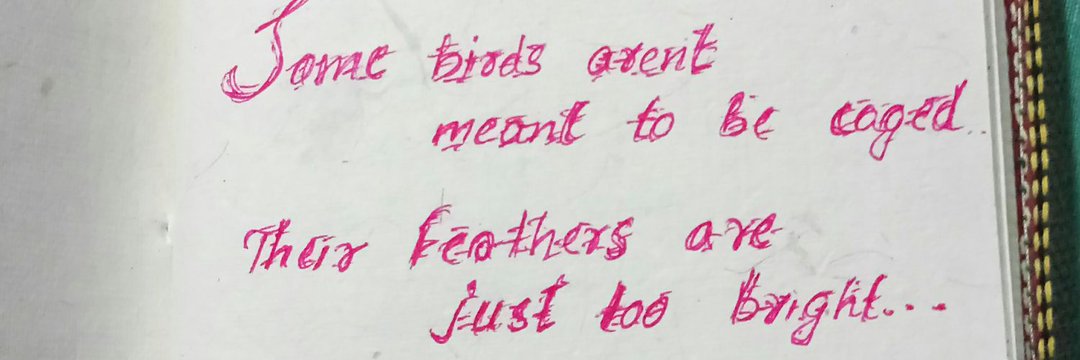 Some birds arent
meant to be caged..
Their feathers are
just too bright...